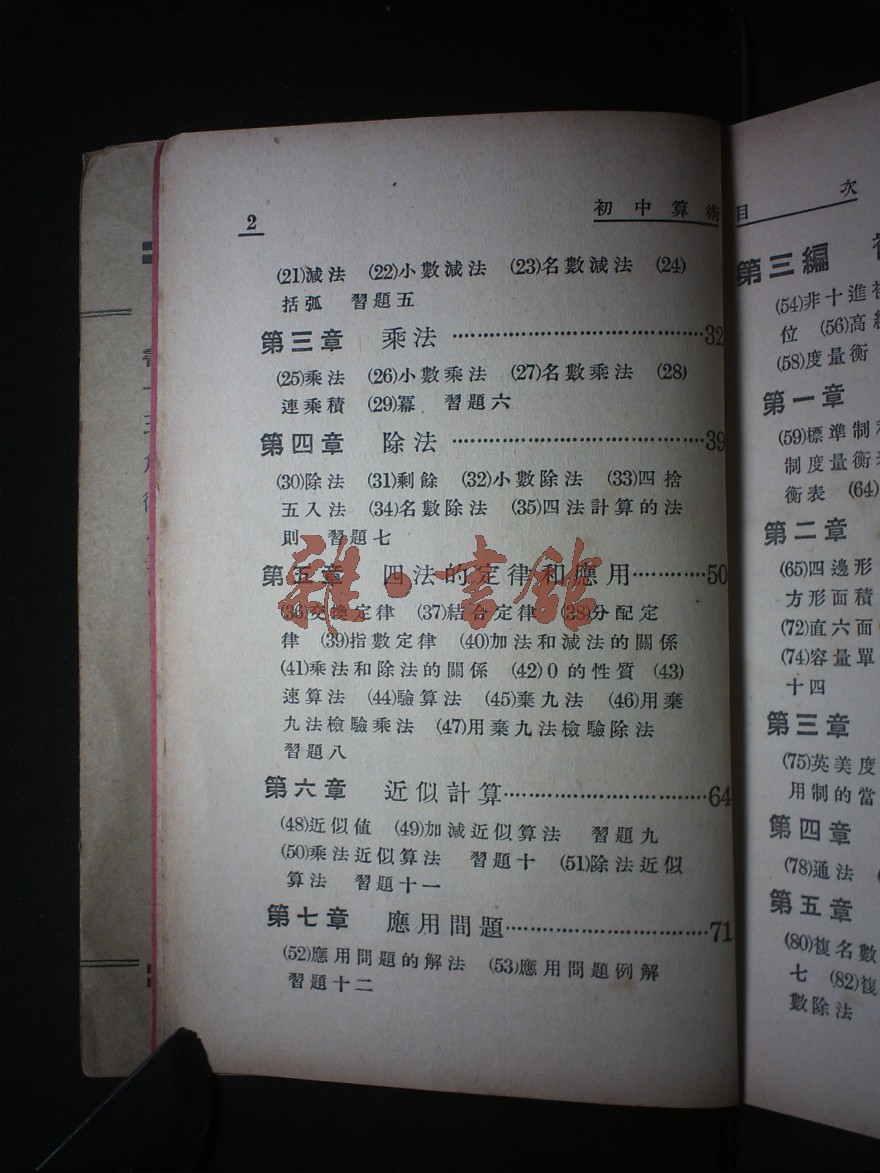 2
初中算術
(21)減法 (22)小數減法 (23)名數減法 (24)
括弧 習題五
第三章 乘法 ……………………………32
(25)乘法 (26)小數乘法 (27)名數乘法 (28)
連乘積 (29)冪 習題六
第四章 除法 ……………………………39
(30)除法 (31)剩餘 (32)小數除法 (33)四捨
五入法 (34)名數除法 (35)四法計算的法
則 習題七
第五章 四法的定律和應用…………50
(36)交換定律 (37)結合定律 (38)分配定
律 (39)指數定律 (40)加法和減法的關係
(41)乘法和除法的關係 (42)0的性質 (43)
速算法 (44)驗算法 (45)棄九法 (46)用棄
九法檢驗乘法 (47)用棄九法檢驗除法
習題八
第六章 近似計算………………………64
(48)近似値 (49)加減近似算法 習題九
(50)乘法近似算法 習題十 (51)除法近似
算法 習題十一
第七章 應用問題………………………71
(52)應用問題的解法 (53)應用問題例解
習題十二
雜·書館
目次
第三編
(54)非十進
位 (56)高
(58)度量衡
第一章
(59)標準制
制度量衡
衡表 (64)
第二章
(65)四邊形
方形面積
(72)直六面
(74)容量單
十四
第三章
(75)英美度
用制的當
第四章
(78)通法
第五章
(80)複名數
七 (82)複
數除法